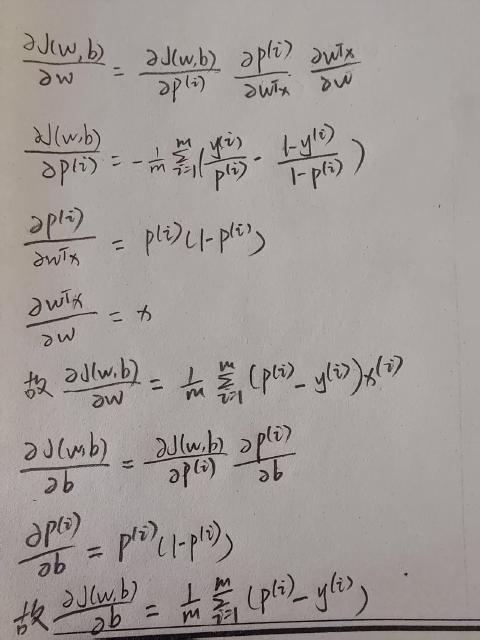 ∂J(w,b)/∂w = ∂J(w,b)/∂p(i) ∂p(i)/∂wTx ∂wTx/∂w
∂J(w,b)/∂p(i) = -1/m Σ_{i=1}^{m} (y(i)/p(i) - (1-y(i))/(1-p(i)))
∂p(i)/∂wTx = p(i)(1-p(i))
∂wTx/∂w = x
故 ∂J(w,b)/∂w = 1/m Σ_{i=1}^{m} (p(i) - y(i))x(i)
∂J(w,b)/∂b = ∂J(w,b)/∂p(i) ∂p(i)/∂b
∂p(i)/∂b = p(i)(1-p(i))
故 ∂J(w,b)/∂b = 1/m Σ_{i=1}^{m} (p(i) - y(i))